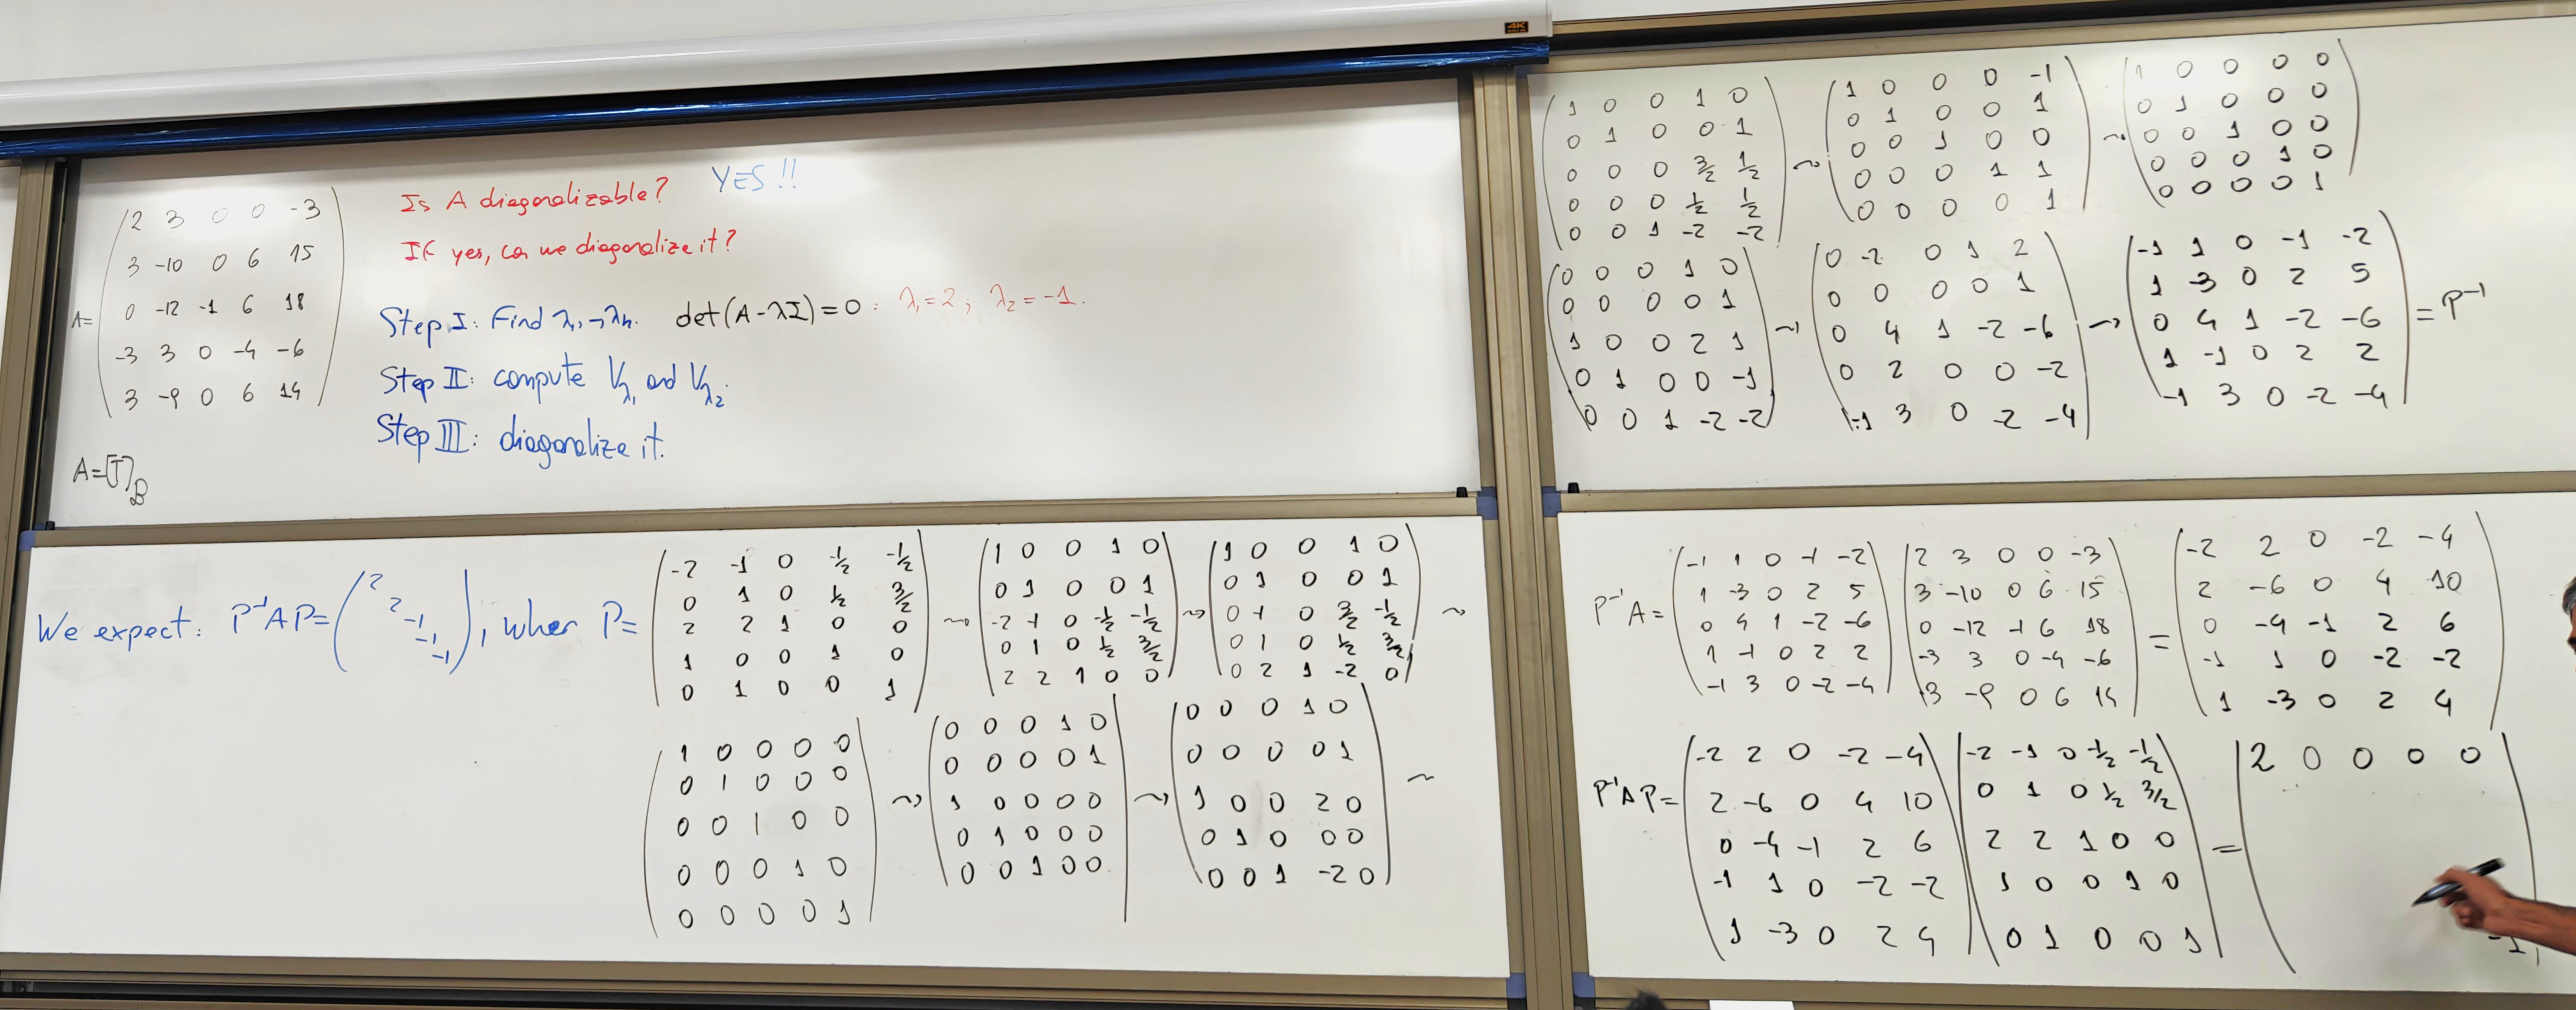 4K
A= (2 3 0 0 -3
3 -10 0 6 15
0 -12 -1 6 18
-3 3 0 -4 -6
3 -9 0 6 14)
A=[T]_B
Is A diagonalizable? YES!!
If yes, can we diagonalize it?
Step I: Find λ₁,→λₙ. det(A-λI)=0: λ₁=2; λ₂=-1.
Step II: compute V_λ₁ and V_λ₂.
Step III: diagonalize it.
We expect: P⁻¹AP= (2 2 -1 -1 -1), when P=
(-2 -1 0 -1/2 -1/2
0 1 0 1/2 3/2
2 2 1 0 0
1 0 0 1 0
0 1 0 0 1) ~
(1 0 0 1 0
0 1 0 0 1
-2 -1 0 -1/2 -1/2
0 1 0 1/2 3/2
2 2 1 0 0) ~
(1 0 0 1 0
0 1 0 0 1
0 -1 0 3/2 -1/2
0 1 0 1/2 3/2
0 2 1 -2 0) ~
(1 0 0 0 0
0 1 0 0 0
0 0 1 0 0
0 0 0 1 0
0 0 0 0 1) ~
(0 0 0 1 0
0 0 0 0 1
1 0 0 0 0
0 1 0 0 0
0 0 1 0 0) ~
(0 0 0 1 0
0 0 0 0 1
1 0 0 2 0
0 1 0 0 0
0 0 1 -2 0) ~
(1 0 0 1 0
0 1 0 0 1
0 0 0 3/2 1/2
0 0 0 1/2 1/2
0 0 1 -2 -2) ~
(1 0 0 0 -1
0 1 0 0 1
0 0 1 0 0
0 0 0 1 1
0 0 0 0 1) ~
(1 0 0 0 0
0 1 0 0 0
0 0 1 0 0
0 0 0 1 0
0 0 0 0 1)
(0 0 0 1 0
0 0 0 0 1
1 0 0 2 1
0 1 0 0 -1
0 0 1 -2 -2) ~
(0 -2 0 1 2
0 0 0 0 1
0 4 1 -2 -6
0 2 0 0 -2
-1 3 0 -2 -4) ~
(-1 1 0 -1 -2
1 -3 0 2 5
0 4 1 -2 -6
1 -1 0 2 2
-1 3 0 -2 -4) = P⁻¹
P⁻¹A=
(-1 1 0 -1 -2
1 -3 0 2 5
0 4 1 -2 -6
1 -1 0 2 2
-1 3 0 -2 -4)
(2 3 0 0 -3
3 -10 0 6 15
0 -12 -1 6 18
-3 3 0 -4 -6
3 -9 0 6 14) =
(-2 2 0 -2 -4
2 -6 0 4 10
0 -4 -1 2 6
-1 1 0 -2 -2
1 -3 0 2 4)
P⁻¹AP=
(-2 2 0 -2 -4
2 -6 0 4 10
0 -4 -1 2 6
-1 1 0 -2 -2
1 -3 0 2 4)
(-2 -1 0 -1/2 -1/2
0 1 0 1/2 3/2
2 2 1 0 0
1 0 0 1 0
0 1 0 0 1) =
(2 0 0 0 0
-1)